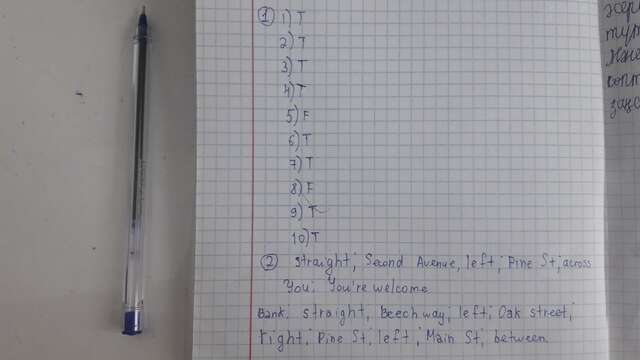 ① 1) T
2) T
3) T
4) T
5) F
6) T
7) T
8) F
9) T
10) T
② straight; Second Avenue, left; Pine St, across
You: You're welcome
Bank. straight, Beech way; left; Oak street;
right; Pine St, left; Main St, between.